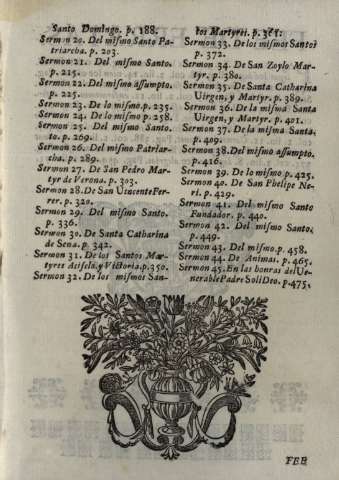 Santo Domingo. p. 188.
Sermon 20. Del miſmo Santo Pa-
triarcha. p. 203.
Sermon 21. Del miſmo Santo.
p. 215.
Sermon 22. Del miſmo aſſumpto.
p. 225.
Sermon 23. De lo miſmo. p. 235.
Sermon 24. De lo miſmo p. 258.
Sermon 25. Del miſmo Santo.
to. p. 269.
Sermon 26. Del miſmo Patriar-
cha. p. 289.
Sermon 27. De San Pedro Mar-
tyr de Verona. p. 303.
Sermon 28. De San Vincente Fer-
rer. p. 320.
Sermon 29. Del miſmo Santo.
p. 336.
Sermon 30. De Santa Catharina
de Sena. p. 342.
Sermon 31. De los Santos Mar-
tyres Aciſclo, y Victoria. p. 350.
Sermon 32. De los miſmos San-
tos Martyres. p. 361.
Sermon 33. De los miſmos Santos
p. 372.
Sermon 34. De San Zoylo Mar-
tyr. p. 380.
Sermon 35. De Santa Catharina
Uirgen, y Martyr. p. 389.
Sermon 36. De la miſma Santa
Uirgen, y Martyr p. 401.
Sermon 37. De la miſma Santa.
p. 409.
Sermon 38. Del miſmo aſſumpto.
p. 416.
Sermon 39. De lo miſmo. p. 425.
Sermon 40. De San Phelipe Ne-
ri. p. 429.
Sermon 41. Del miſmo Santo
Fundador. p. 440.
Sermon 42. Del miſmo Santo.
p. 449.
Sermon 43. Del miſmo. p. 458.
Sermon 44. De Animas. p. 465.
Sermon 45. En las honras del Ue-
nerable Padre Soli Deo. p. 475.
FEE